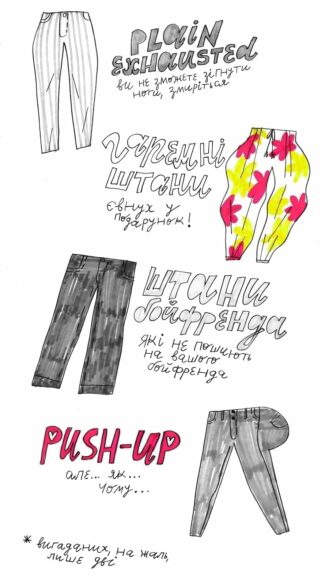 PLAIN
EXHAUSTED
ВИ НЕ ЗМОЖЕТЕ ЗІГНУТИ
НОГИ, ЗМИРІТЬСЯ
ГАРЕМНІ
ШТАНИ
ЄВНУХ У
ПОДАРУНОК!
ШТАНИ
бойфренда
ЯКІ НЕ ПОШИЮТЬ
НА ВАШОГО
бойфренда
PUSH-UP
АЛЕ... ЯК...
ЧОМУ...
* вигаданих, на жаль,
лише дві